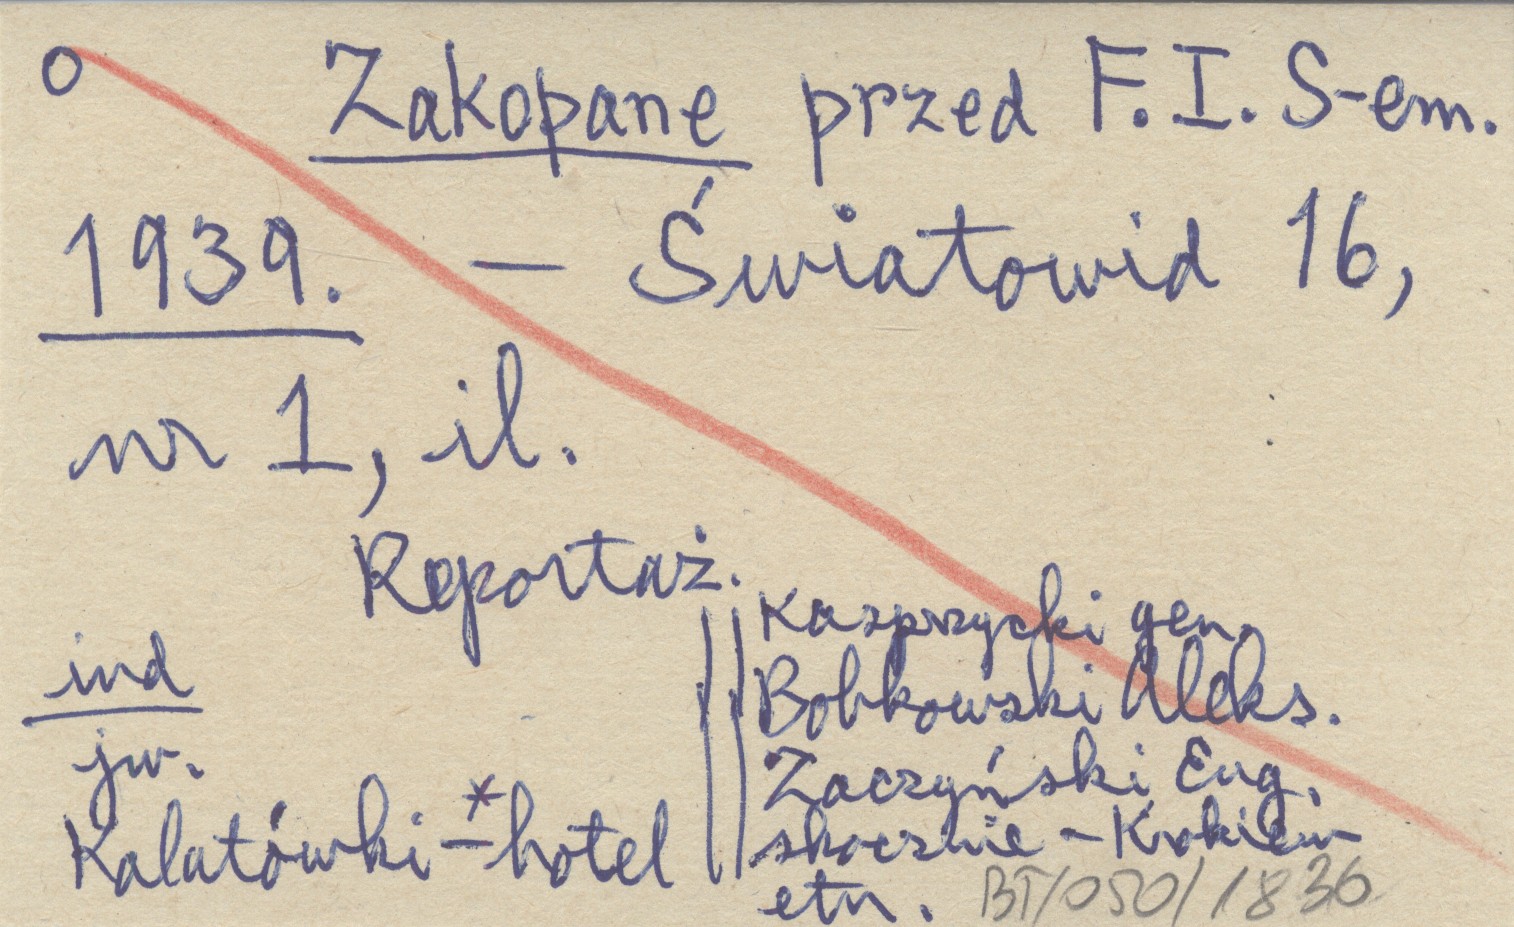 o Zakopane przed F.I.S-em.
1939. – Światowid 16,
nr 1, il.
Reportaż.
ind
jw.
Kalatówki – * hotel
Kasprzycki gen.
Bobkowski Aleks.
Zaczyński Eug.
skocznie – Krokiew
etn.
BT/050/1836